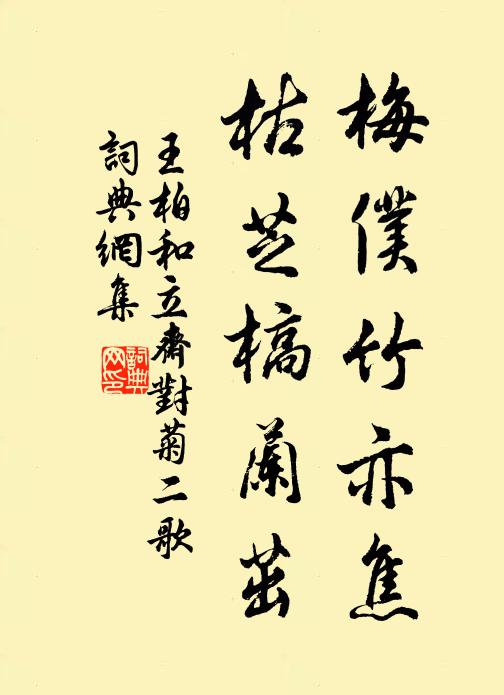 梅僕竹亦焦
枯芝槁蘭茁
王柏和立齋對菊二歌
詞典網集
詞典网印